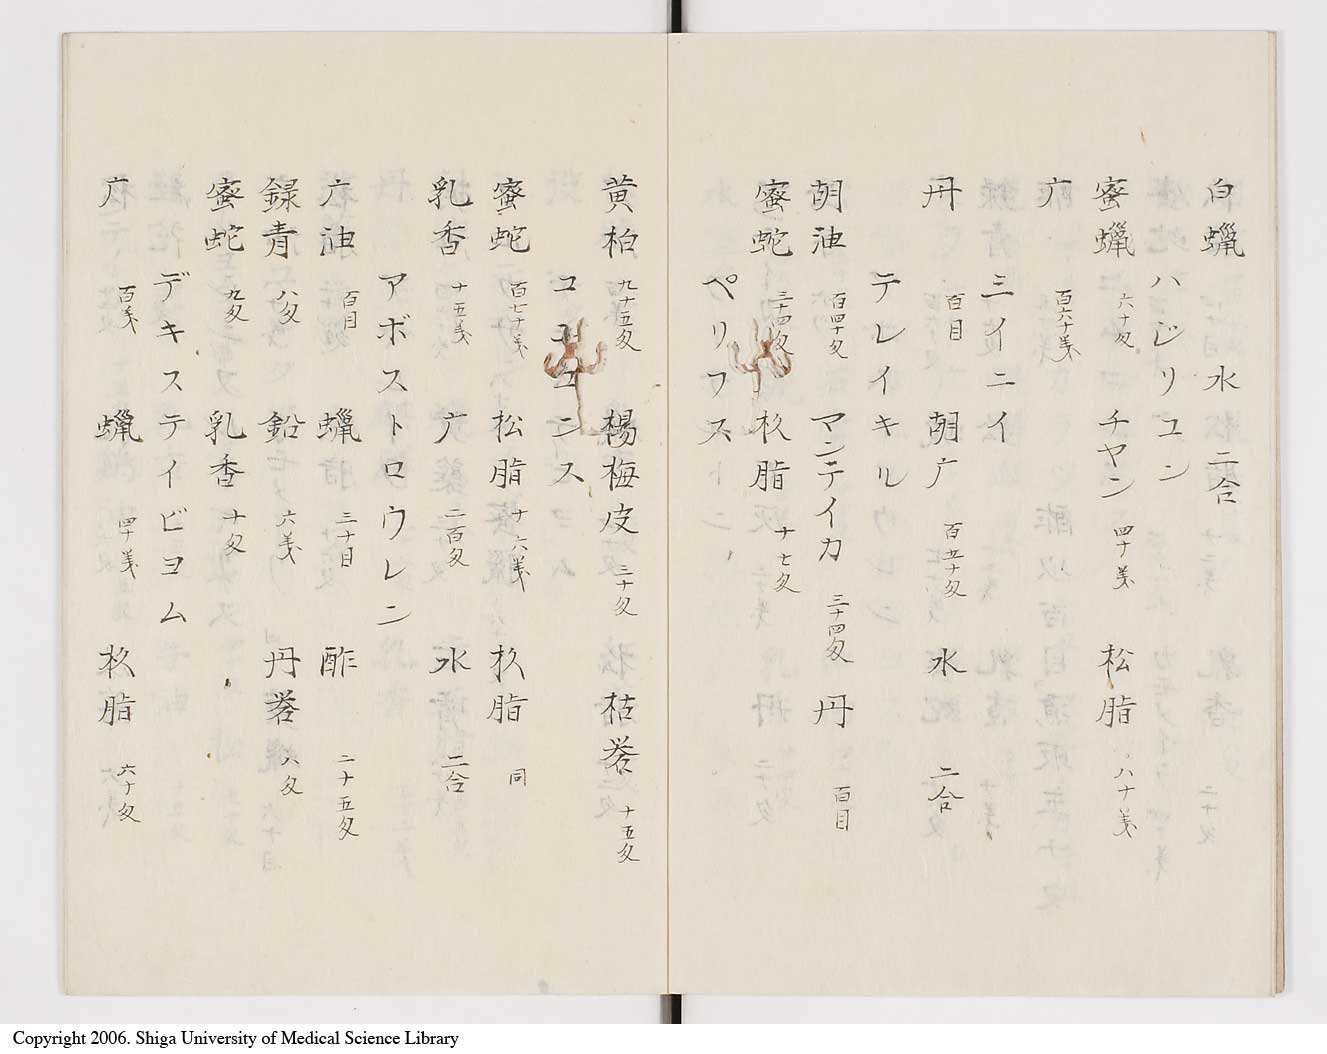 白蠟 水 二合
ハジリユン
蜜蠟 六十匁 チヤン 四十戔 松脂 八十戔
广 百六十戔
ミイニイ
丹 百目 胡广 百五十匁 水 二合
テレイキル
胡油 百四十匁 マンテイカ 三十四匁 丹 百目
蜜蛇 三十四匁 杦脂 十七匁
ペリワス
黄柏 九十五匁 楊梅皮 三十匁 枯礬 十五匁
コンス
蜜蛇 百七十戔 松脂 十六戔 杦脂 同
乳香 十五戔 广 二百匁 水 二合
アボストロウレン
广油 百目 蠟 三十目 酢 二十五匁
録青 八匁 鉛 六戔 丹礬 八匁
蜜蛇 九匁 乳香 十匁
デキステイビヨム
广 百戔 蠟 四十戔 杦脂 六十匁
Copyright 2006. Shiga University of Medical Science Library